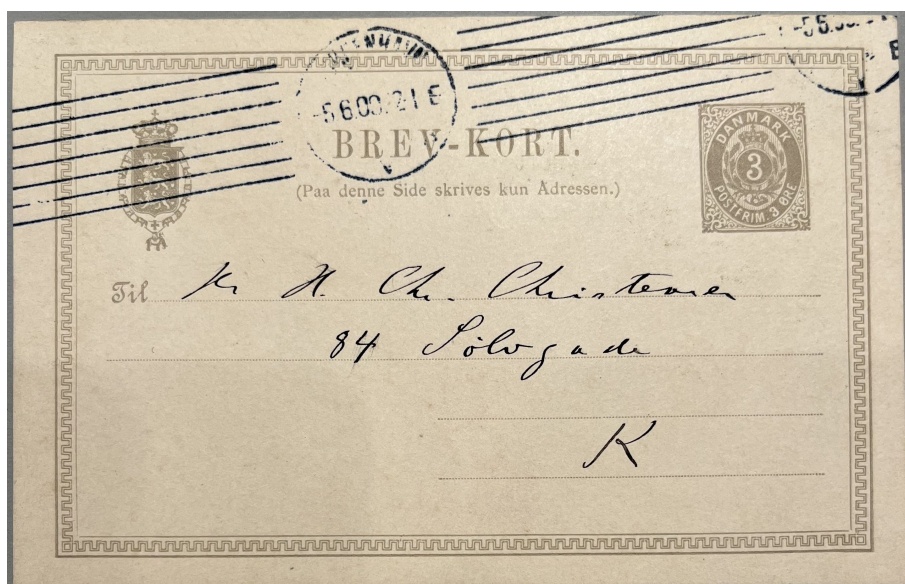 KJØBENHAVN
-5.6.00. 2-1 E
-5.6.00. 2-1 E
BREV-KORT.
(Paa denne Side skrives kun Adressen.)
DANMARK
3
POSTFRIM. 3 ØRE
Til Hr H. Chr. Christensen
84 Sølvgade
K